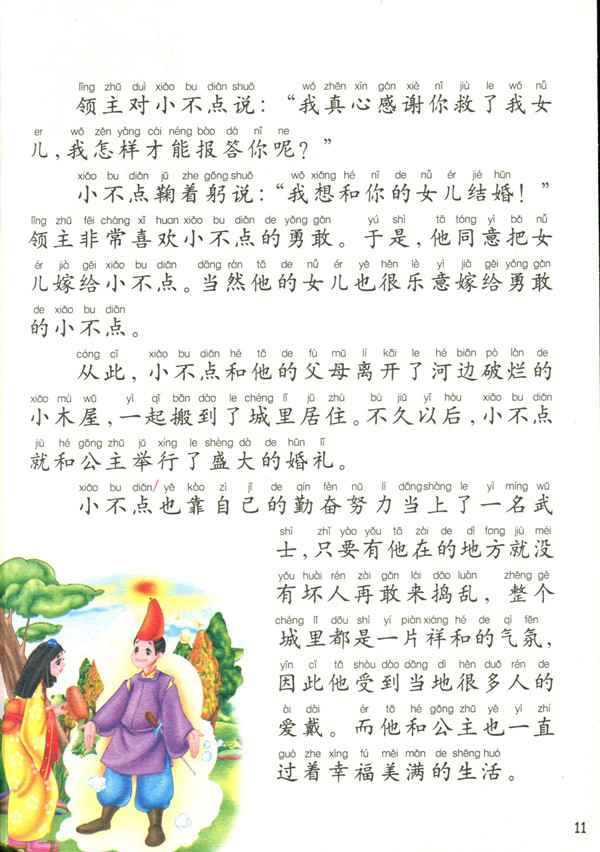 lǐng zhǔ duì xiǎo bu diǎn shuō wǒ zhēn xīn gǎn xiè nǐ jiù le wǒ nǚ
领主对小不点说：“我真心感谢你救了我女
er wǒ zěn yàng cái néng bào dá nǐ ne
儿，我怎样才能报答你呢？”
xiǎo bu diǎn jū zhe gōng shuō wǒ xiǎng hé nǐ de nǚ ér jié hūn
小不点鞠着躬说：“我想和你的女儿结婚！”
lǐng zhǔ fēi cháng xǐ huan xiǎo bu diǎn de yǒng gǎn yú shì tā tóng yì bǎ nǚ
领主非常喜欢小不点的勇敢。于是，他同意把女
ér jià gěi xiǎo bu diǎn dāng rán tā de nǚ ér yě hěn lè yì jià gěi yǒng gǎn
儿嫁给小不点。当然他的女儿也很乐意嫁给勇敢
de xiǎo bu diǎn
的小不点。
cóng cǐ xiǎo bu diǎn hé tā de fù mǔ lí kāi le hé biān pò làn de
从此，小不点和他的父母离开了河边破烂的
xiǎo mù wū yì qǐ bān dào le chéng lǐ jū zhù bù jiǔ yǐ hòu xiǎo bu diǎn
小木屋，一起搬到了城里居住。不久以后，小不点
jiù hé gōng zhǔ jǔ xíng le shèng dà de hūn lǐ
就和公主举行了盛大的婚礼。
xiǎo bu diǎn yě kào zì jǐ de qín fèn nǔ lì dāng shàng le yì míng wǔ
小不点也靠自己的勤奋努力当上了一名武
shì zhǐ yào yǒu tā zài de dì fang jiù méi
士，只要有他在的地方就没
yǒu huài rén zài gǎn lái dǎo luàn zhěng gè
有坏人再敢来捣乱，整个
chéng lǐ dōu shì yí piàn xiáng hé de qì fēn
城里都是一片祥和的气氛，
yīn cǐ tā shòu dào dāng dì hěn duō rén de
因此他受到当地很多人的
ài dài ér tā hé gōng zhǔ yě yì zhí
爱戴。而他和公主也一直
guò zhe xìng fú měi mǎn de shēng huó
过着幸福美满的生活。
11